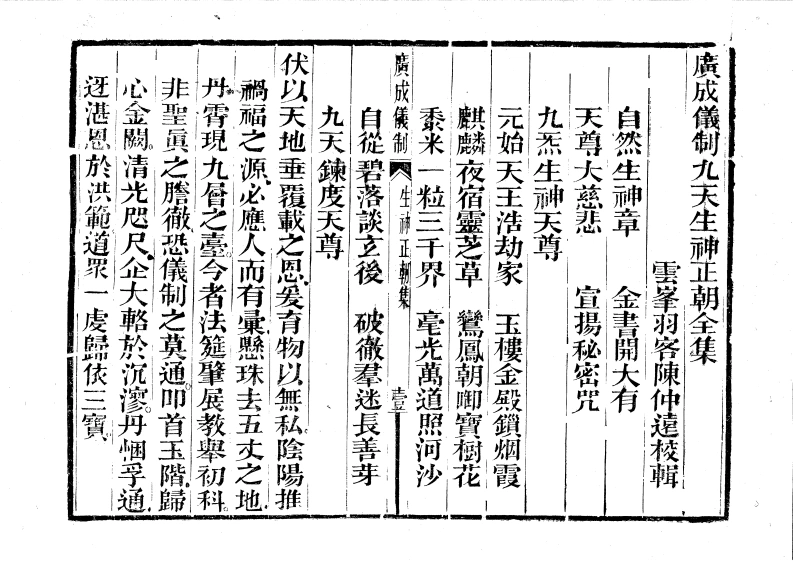 廣成儀制九天生神正朝全集
雲峯羽客陳仲遠校輯
自然生神章　金書開大有
天尊大慈悲　宣揚秘密咒
九炁生神天尊
元始天王浩劫家　玉樓金殿鎖烟霞
麒麟夜宿靈芝草　鸞鳳朝啣寶樹花
黍米一粒三千界　毫光萬道照河沙
廣成儀制　生神正朝集　壹
自從碧落談玄後　破徹羣迷長善芽
九天鍊度天尊
伏以天地垂覆載之恩爰育物以無私陰陽推
禍福之源必應人而有彙懸珠去五丈之地
丹霄現九層之臺今者法筵肇展教舉初科
非聖眞之膽徹恐儀制之莫通叩首玉階歸
心金闕清光咫尺企大輅於沉漻丹悃孚通
迓湛恩於洪範道眾一虔歸依三寶